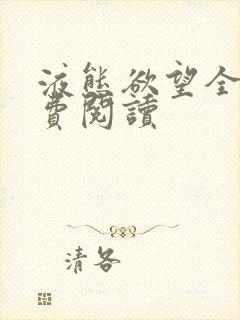 液態欲望全
費閱讀
清各